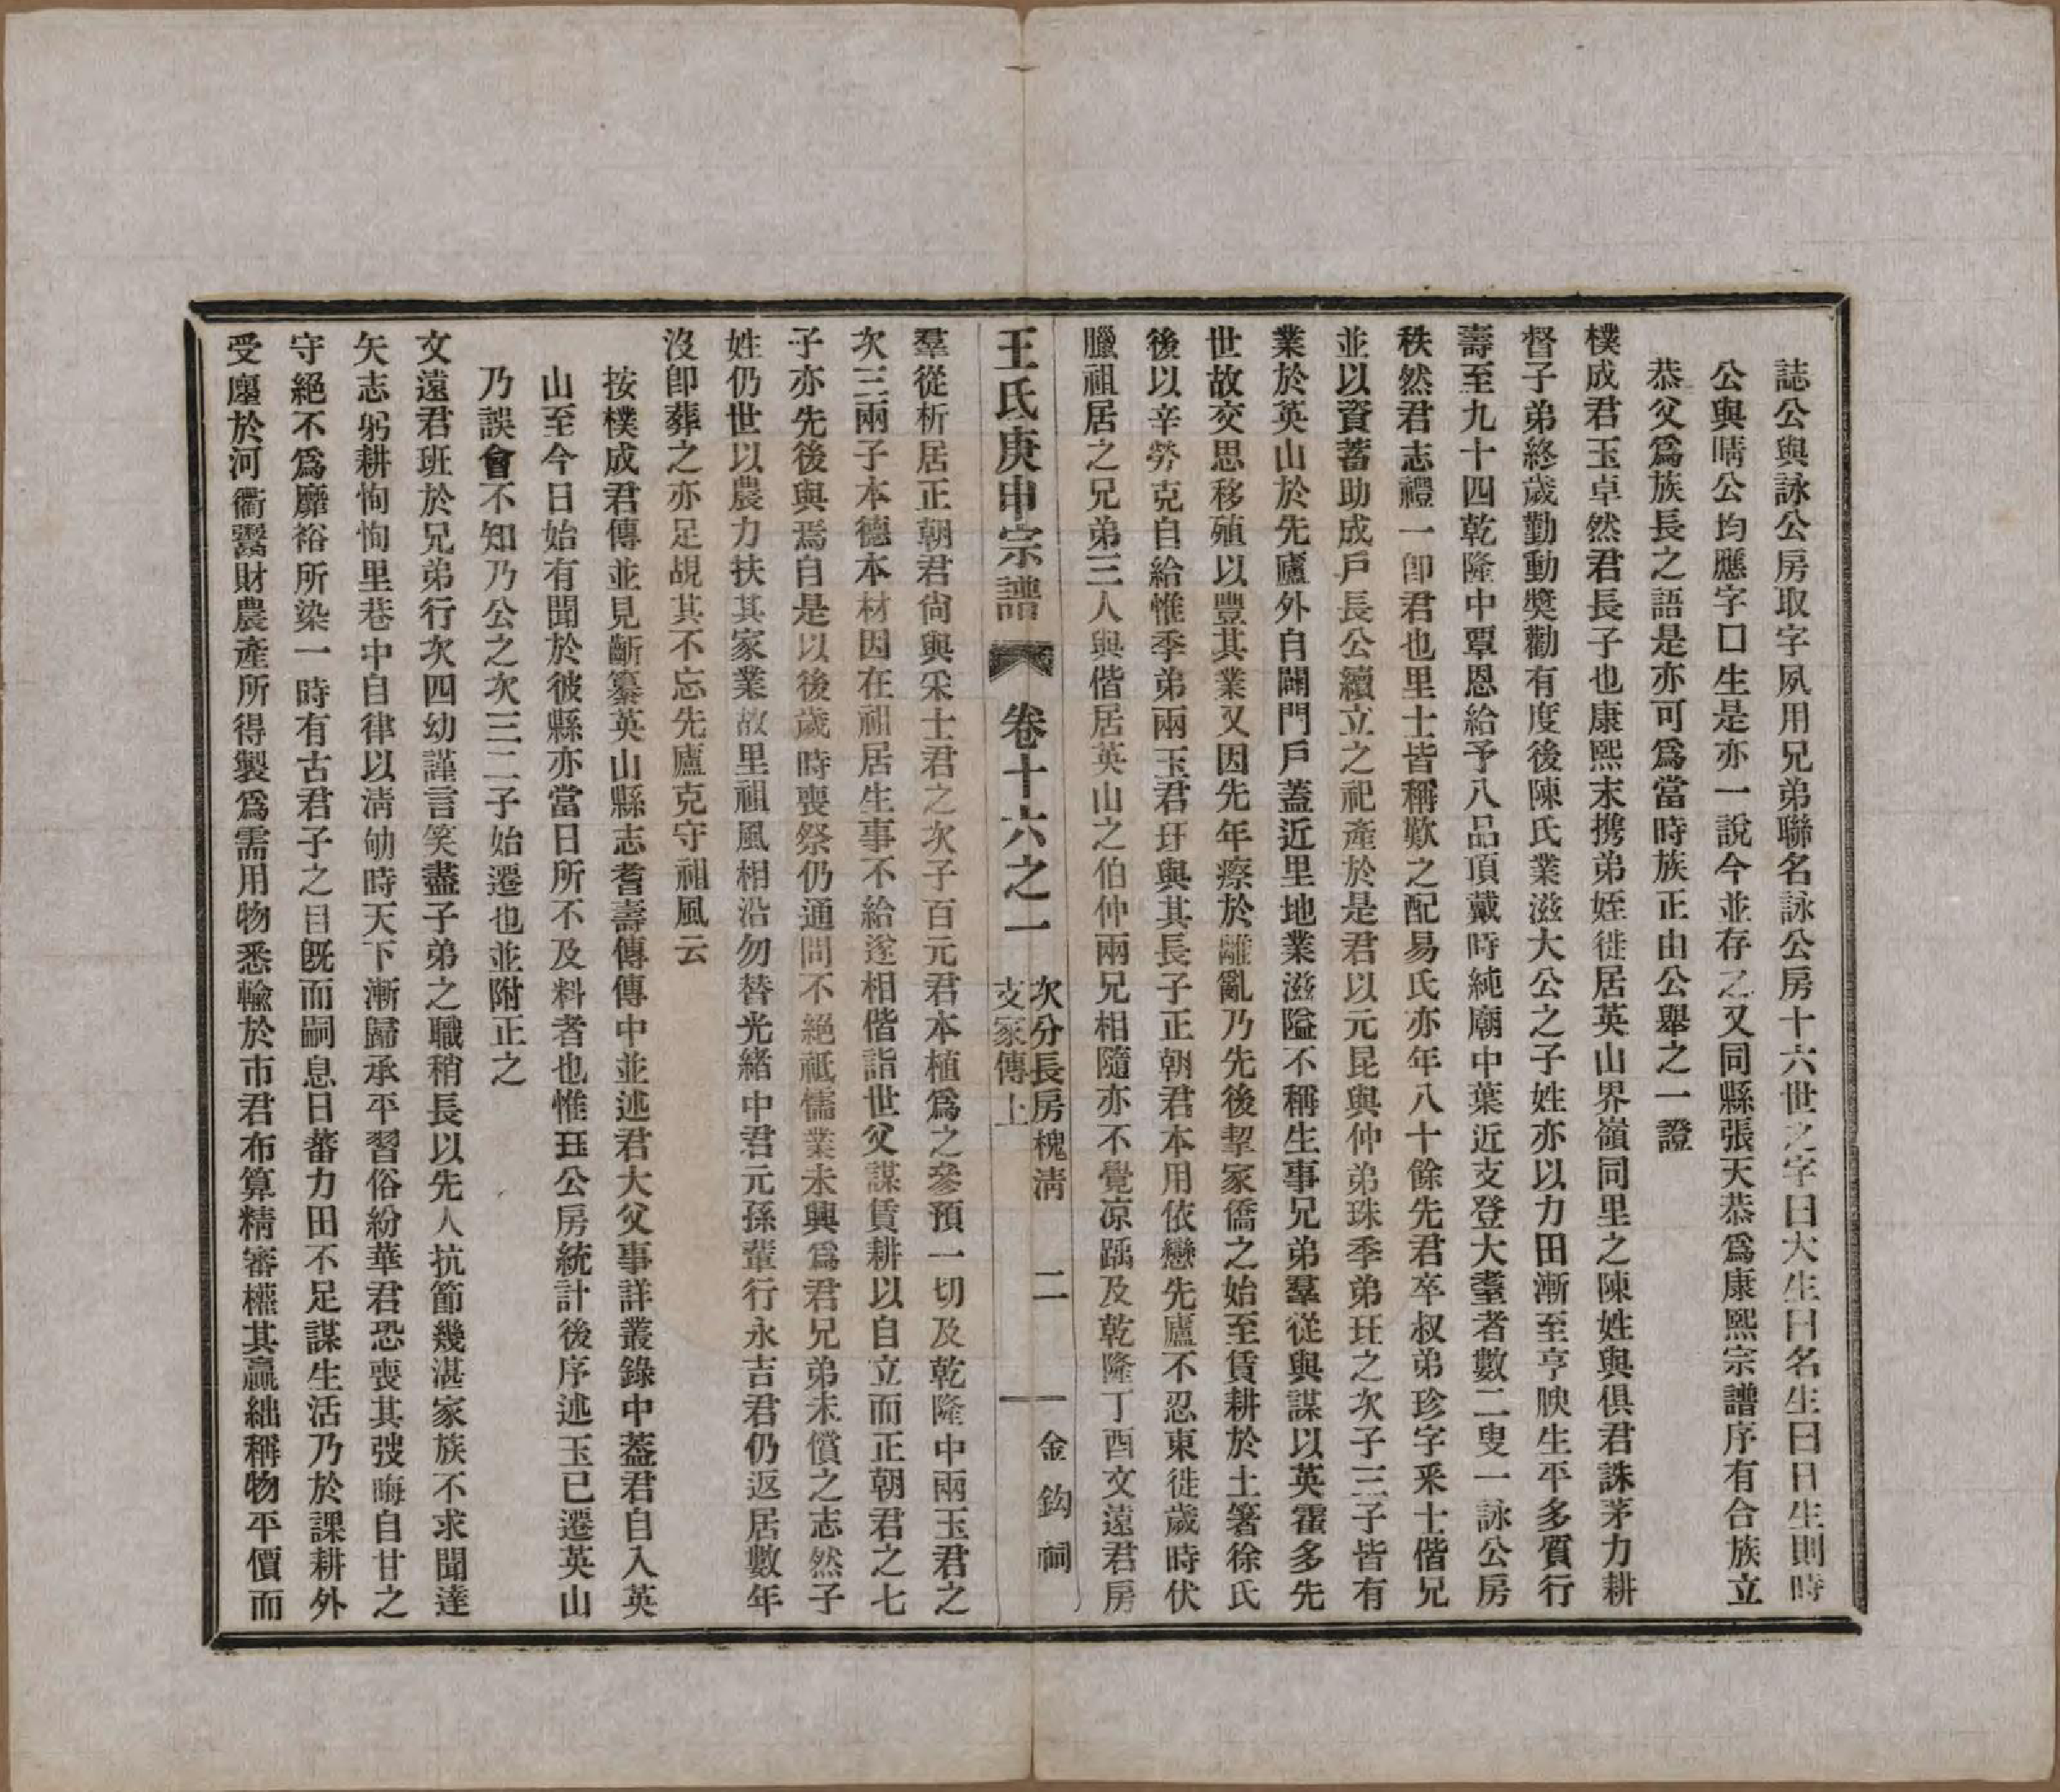 誌公與詠公房取字夙用兄弟聯名詠公房十六世之字曰大生曰名生曰日生則時
公與晴公均應字口生是亦一說今並存之又同縣張天恭爲康熙宗譜序有合族立
恭父爲族長之語是亦可爲當時族正由公舉之一證
樸成君玉卓然君長子也康熙末携弟姪徙居英山界嶺同里之陳姓與俱君誅茅力耕
督子弟終歲勤動獎勸有度後陳氏業滋大公之子姓亦以力田漸至亨腴生平多質行
壽至九十四乾隆中覃恩給予八品頂戴時純廟中葉近支登大耋者數二叟一詠公房
秩然君志禮一卽君也里士皆稱歎之配易氏亦年八十餘先君卒叔弟珍字釆士偕兄
並以資蓄助成戶長公續立之祀產於是君以元昆與仲弟珠季弟玨之次子三子皆有
業於英山於先廬外自闢門戶蓋近里地業滋隘不稱生事兄弟羣從與謀以英霍多先
世故交思移殖以豐其業又因先年瘵於離亂乃先後挈家僑之始至賃耕於土箸徐氏
後以辛勞克自給惟季弟兩玉君玨與其長子正朝君本用依戀先廬不忍東徙歲時伏
臘祖居之兄弟三人與偕居英山之伯仲兩兄相隨亦不覺涼踽及乾隆丁酉文遠君房
王氏庚申宗譜 卷十六之一 次分長房槐淸支家傳上 二 金鈎祠
羣從析居正朝君尙與釆士君之次子百元君本植爲之參預一切及乾隆中兩玉君之
次三兩子本德本材因在祖居生事不給遂相偕詣世父謀賃耕以自立而正朝君之七
子亦先後與焉自是以後歲時喪祭仍通問不絕祗懦業未興爲君兄弟未償之志然子
姓仍世以農力扶其家業故里祖風相沿勿替光緖中君元孫輩行永吉君仍返居數年
沒卽葬之亦足覘其不忘先廬克守祖風云
按樸成君傳並見齗纂英山縣志耆壽傳傳中並述君大父事詳叢錄中葢君自入英
山至今日始有聞於彼縣亦當日所不及料者也惟玨公房統計後序述玉已遷英山
乃誤會不知乃公之次三二子始遷也並附正之
文遠君班於兄弟行次四幼謹言笑盡子弟之職稍長以先人抗節幾湛家族不求聞達
矢志躬耕恂恂里巷中自律以淸劬時天下漸歸承平習俗紛華君恐喪其弢晦自甘之
守絕不爲靡裕所染一時有古君子之目旣而嗣息日蕃力田不足謀生活乃於課耕外
受廛於河衢鬻財農產所得製爲需用物悉輸於市君布算精審櫮其贏絀稱物平價而